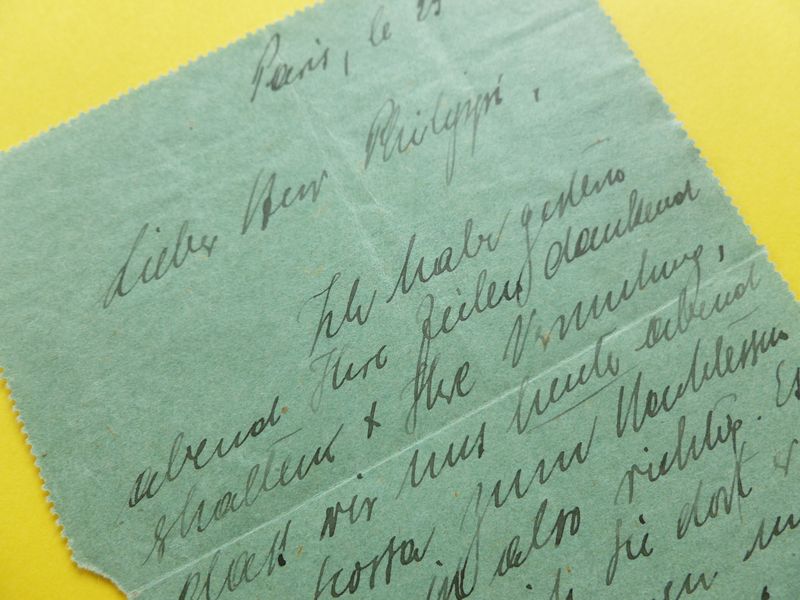 Paris, le 25
Lieber Herr Philippi,
Ich habe gestern
abend Ihre Zeilen dankend
erhalten & Ihre Vermutung,
dass wir uns heute abend
zum Nachtessen
also richtig. Es
Sie dort &